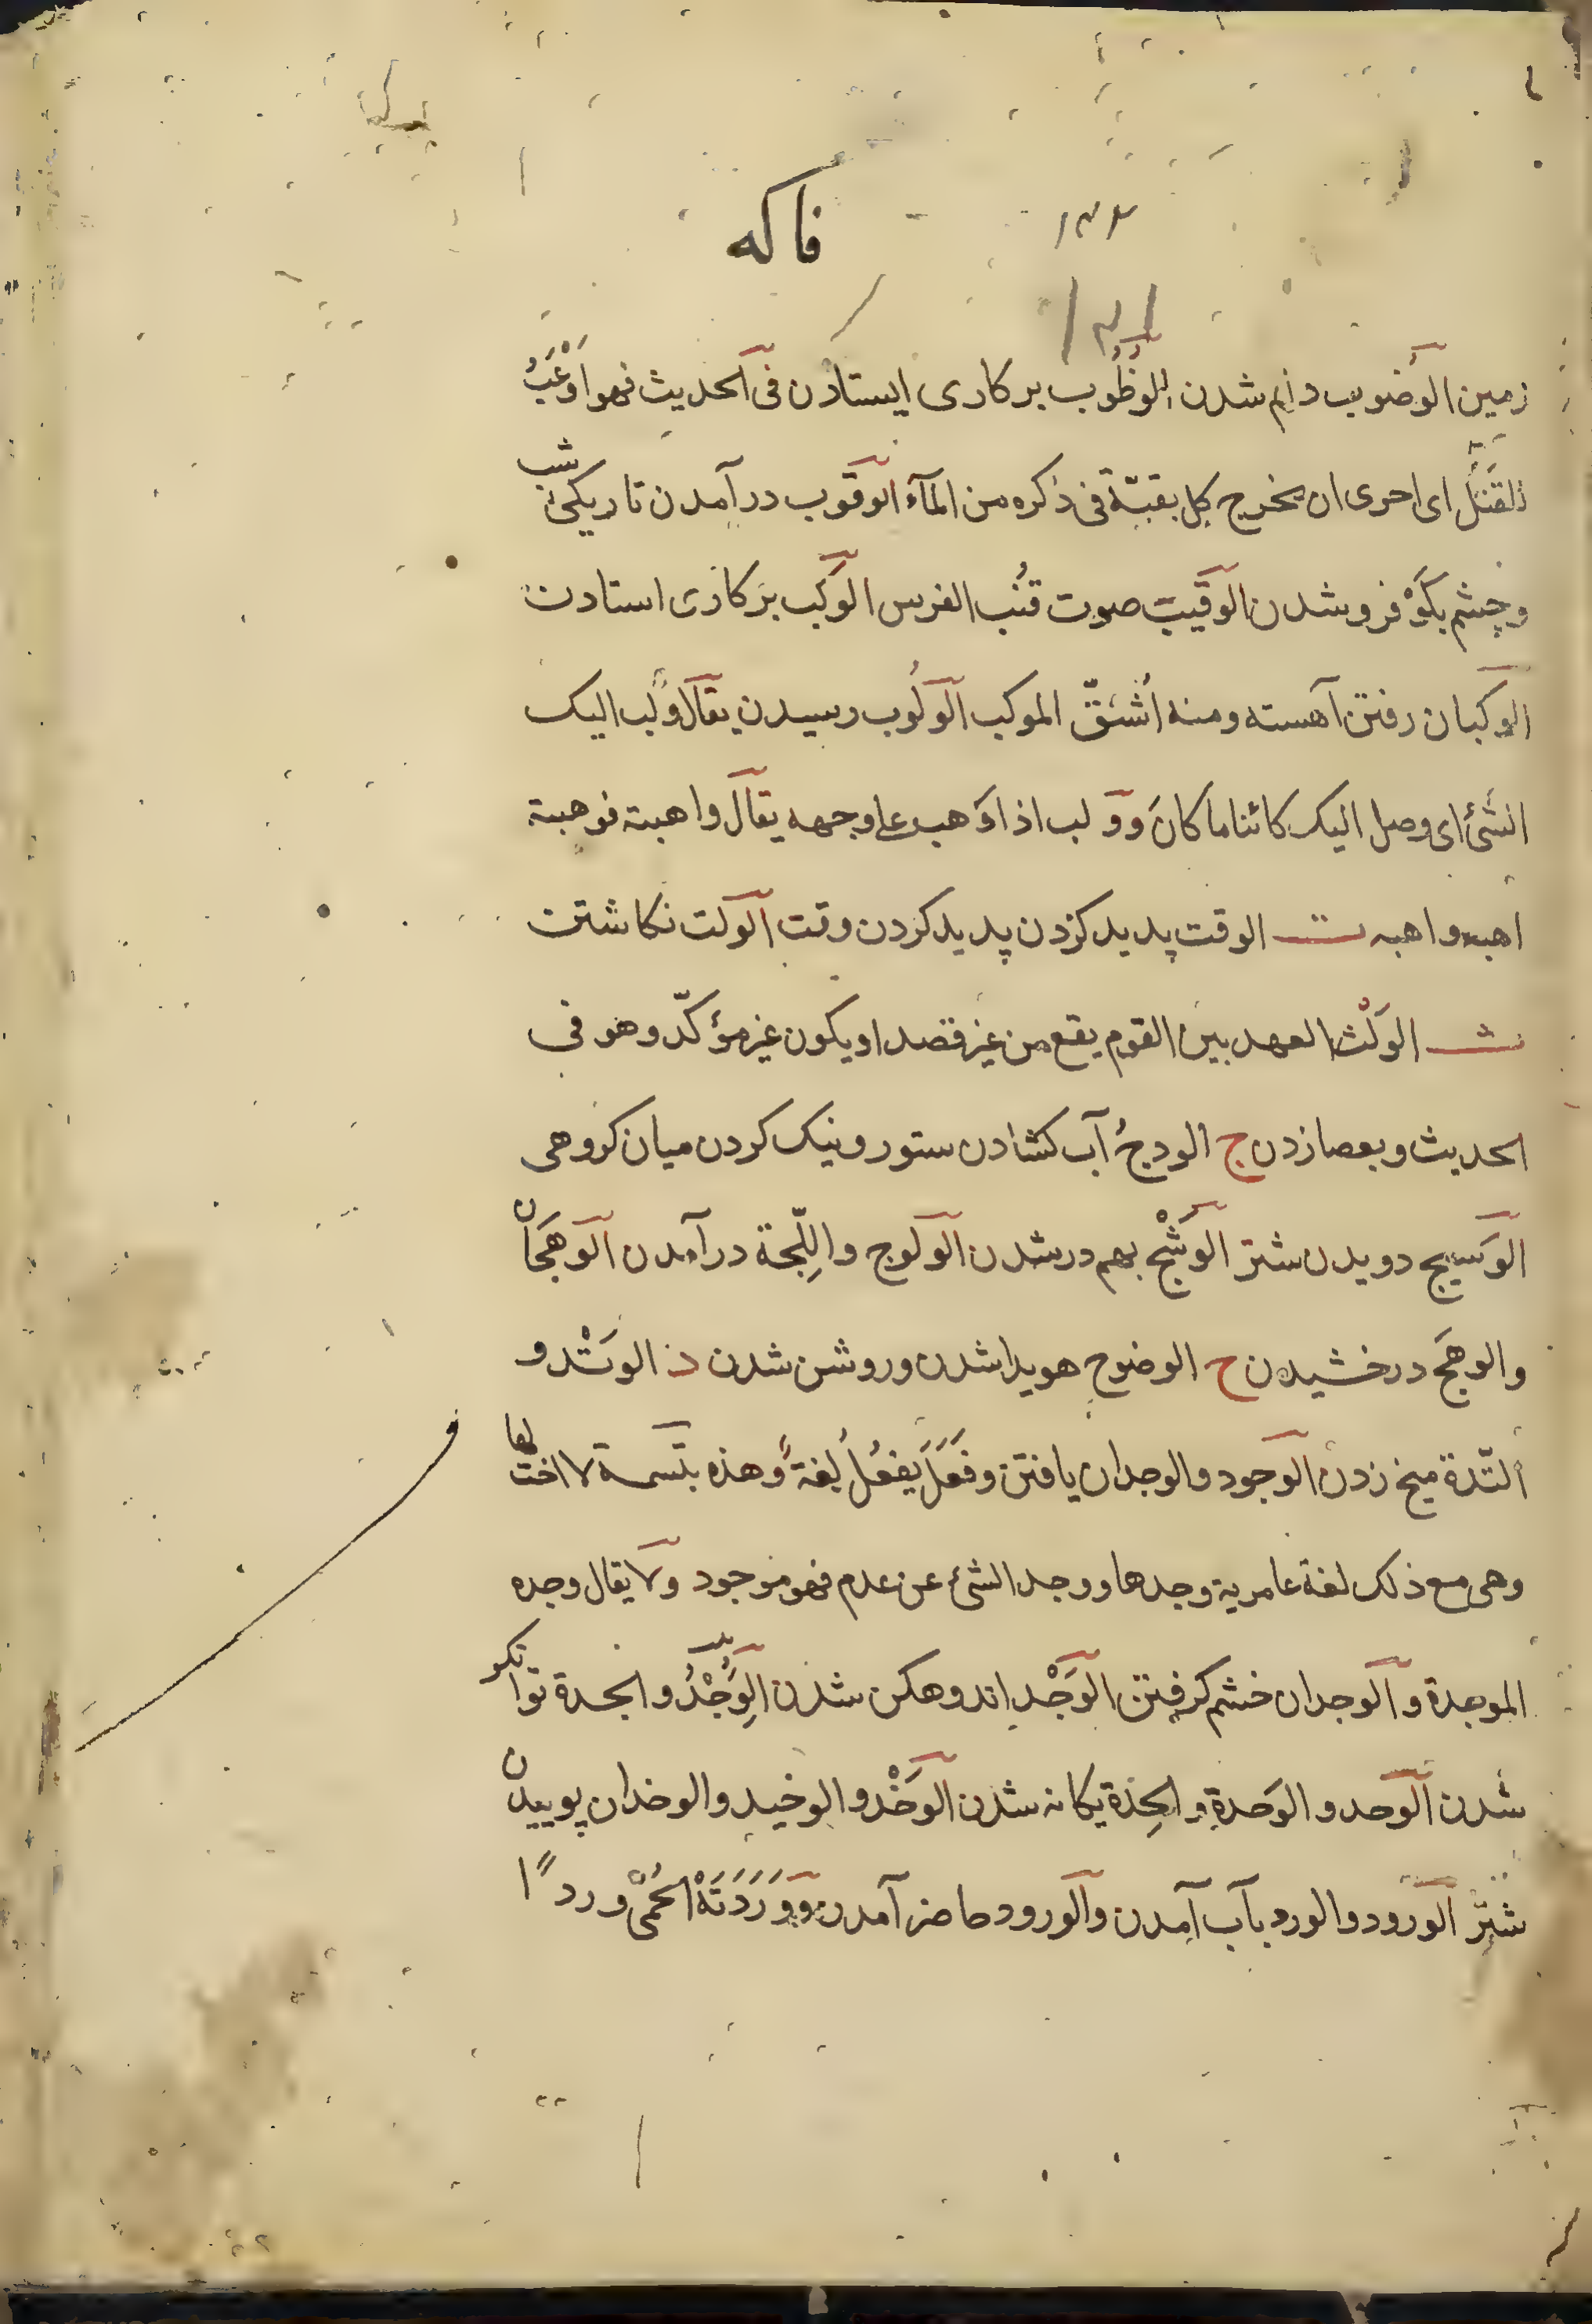 فاكه
۱۳۲
۱۳۱
زمين الوضوب دایم شدن الوُظُوب بر كاری ایستادن فی الحدیث فهو اَوْعَبُ
للقتل ای احری ان یخرج كل بقیّة فی ذكره من المآء الوقوب در آمدن تاریكئ شب
و چشم بكَوْ فرو شدن الوقیب صوت قنُب الفرس الوكب بر كاری استادن
الوكبان رفتن آهسته ومنه اُشتقّ الموكب الولُوب رسیدن یقال ولب الیك
الشئ ای وصل الیك كائنا ما كانَ وولب اذا ذَهب علی وجهه یقال واهبته فوهبته
اهبه واهبه ت الوقت پدید كردن پدید كردن وقت الوكت نكاشتن
ث الوَلْث العهد بین القوم یقع من غیر قصد او یكون غیر مؤكدّ وهو فی
الحدیث و بعصا زدن ج الودجُ آب كشادن ستور و نیك كردن میان كروهی
الوَسیج دویدن شتر الوَشْج بهم در شدن الولوج والِلّجة در آمدن الوهَجَان
والوهَج درخشیدن ح الوضوح هویدا شدن و روشن شدن د الوتْد و
التّدة میخ زدن الوجود والوجدان یافتن وفَعَلَ یَفعُلُ لغةً وهذه بتسمة لا اخت لها
وهی مع ذلك لغة عامریة وجدها ووجد الشئ عن عدم فهو موجود ولا یقال وجده
الموجدة و الوجدان خشم كرفتن الوَجْد اندوهكن شدن الوُِجْدُ والجدة توانكر
شدن الوحد و الوَحدة والحِدَة یكانه شدن الوَخْد و الوخید والوخدان پوییدن
شتر الورود والورد بآب آمدن والورود حاضر آمدن ووَرَدَتَهْ الحُمّی وردًا